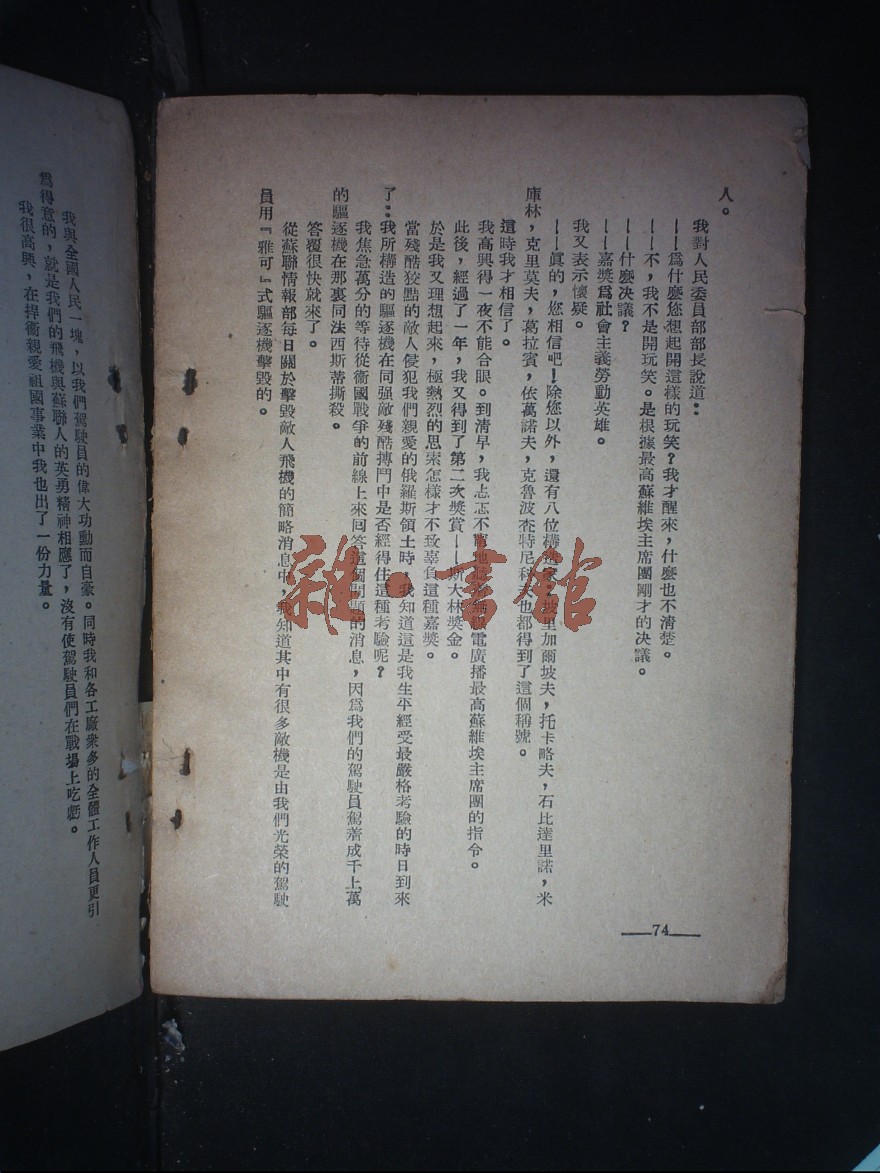 人。
我對人民委員部部長說道：
——爲什麽您想起開這樣的玩笑？我才醒來，什麽也不清楚。
——不，我不是開玩笑。是根據最高蘇維埃主席團剛才的決議。
——什麽決議？
——嘉獎爲社會主義勞動英雄。
我又表示懷疑。
——眞的，您相信吧！除您以外，還有八位構造家，坡里加爾坡夫，托卡略夫，石比達里諾，米
庫林，克里莫夫，葛拉賓，依萬諾夫，克魯波柰特尼科夫也都得到了這個稱號。
這時我才相信了。
我高興得一夜不能合眼。到清早，我忐忑不寧地聽着無線電廣播最高蘇維埃主席團的指令。
此後，經過了一年，我又得到了第二次獎賞——斯大林獎金。
於是我又理想起來，極熱烈的思索怎樣才不致辜負這種嘉獎。
當殘酷狡黠的敵人侵犯我們親愛的俄羅斯領土時，我知道這是我生平經受最嚴格考驗的時日到來
了：我所構造的驅逐機在同强敵殘酷搏鬥中是否經得住這種考驗呢？
我焦急萬分的等待從衞國戰爭的前線上來回答這個問題的消息，因爲我們的駕駛員駕着成千上萬
的驅逐機在那裏同法西斯蒂撕殺。
答覆很快就來了。
從蘇聯情報部每日關於擊毀敵人飛機的簡略消息中，我知道其中有很多敵機是由我們光榮的駕駛
員用『雅可』式驅逐機擊毀的。
74
我與全國人民一塊，以我們駕駛員的偉大功動而自豪。同時我和各工廠衆多的全體工作人員更引
爲得意的，就是我們的飛機與蘇聯人的英勇精神相應了，沒有使駕駛員們在戰場上吃虧。
我很高興，在捍衞親愛祖國事業中我也出了一份力量。
雜·書館